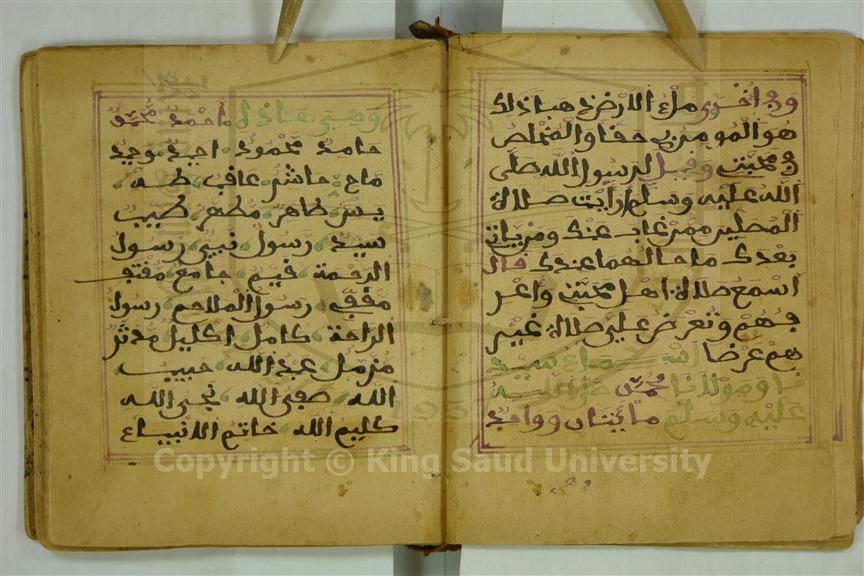 وفي أخرى ملء الارض ذهبا ذلك
هو المومن بي حقا والمخلص
في محبتي وقيل لرسول الله صلى
الله عليه وسلم أرايت صلاة
المصلين ممن غاب عنك ومن ياتي
بعدك ما حالهما عندك قال
اسمع صلاة اهل محبتي واعر
فهم وتعرض علي صلاة غير
هم عرضا اسماء سيد
نا ومولانا محمد صلى الله
عليه وسلم مائتان وواحد
وهي
وهي هاذه احمد محمد
حامد محمود احيد وحيد
ماح حاشر عاقب طه
يس طاهر مطهر طيب
سيد رسول نبي رسول
الرحمة قيم جامع مقتف
مقفى رسول الملاحم رسول
الراحة كامل اكليل مدثر
مزمل عبد الله حبيب
الله صفي الله نجي الله
كليم الله خاتم الانبياء
Copyright © King Saud University